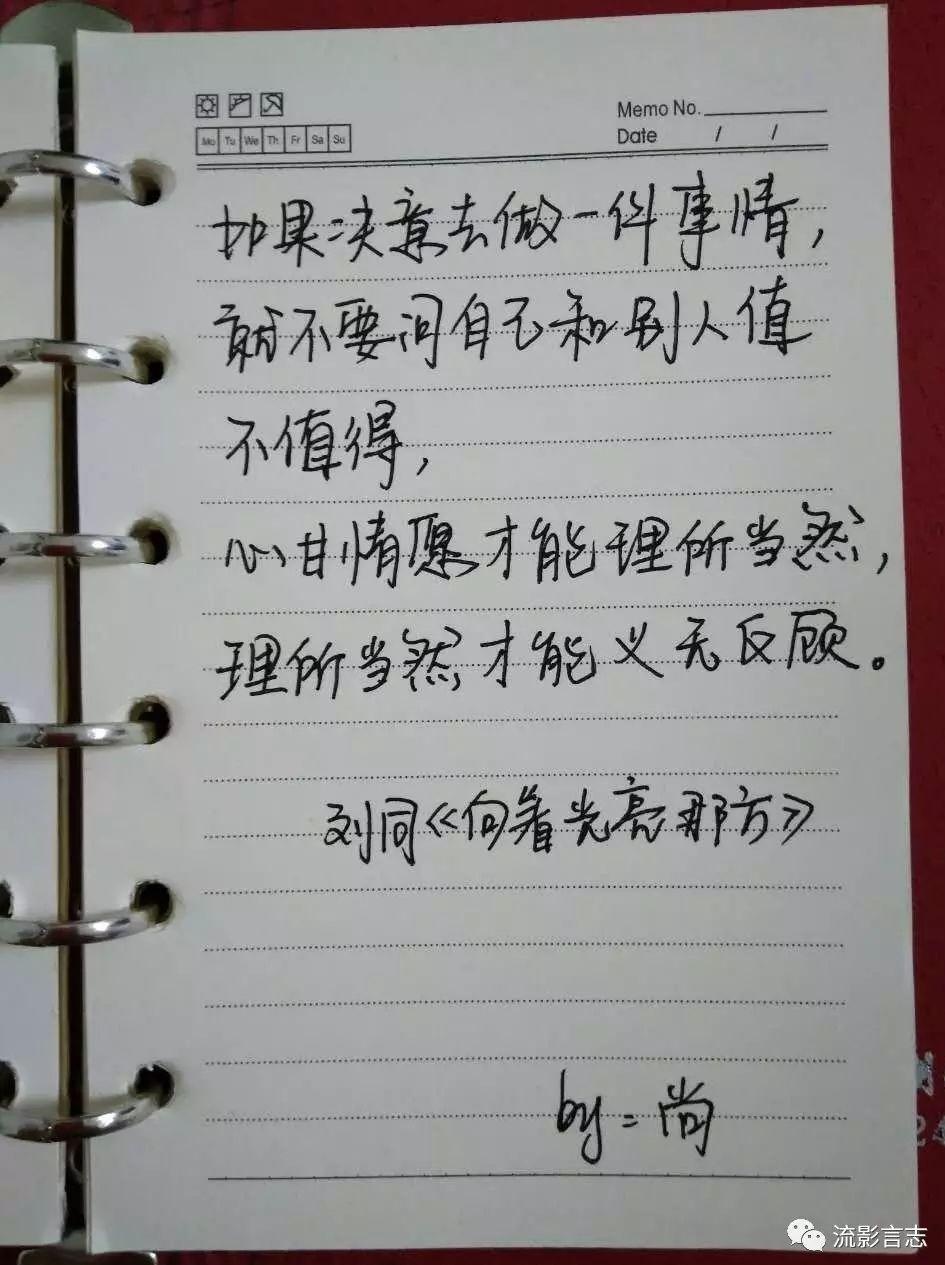 Memo No.
Mo Tu We Th Fr Sa Su
Date / /
如果决意去做一件事情，
就不要问自己和别人值
不值得，
心甘情愿才能理所当然，
理所当然才能义无反顾。
刘同《向着光亮那方》
by=尚
流影言志